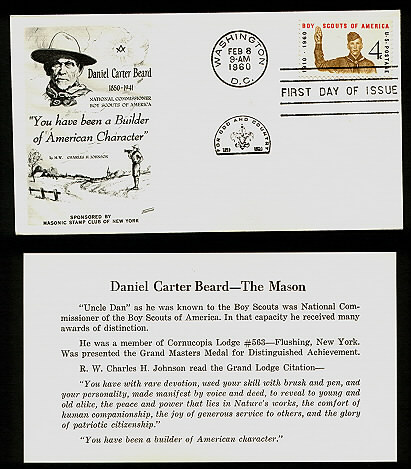 Daniel Carter Beard
1850-1941
NATIONAL COMMISSIONER
BOY SCOUTS OF AMERICA
"You have been a Builder
of American Character"
R. W. CHARLES H JOHNSON
SPONSORED BY
MASONIC STAMP CLUB OF NEW YORK
WASHINGTON
FEB 8
9-AM
1960
D.C.
FOR GOD AND COUNTRY
BOY SCOUTS OF AMERICA
1910-1960
4¢
U.S. POSTAGE
FIRST DAY OF ISSUE
Daniel Carter Beard—The Mason
"Uncle Dan" as he was known to the Boy Scouts was National Com-
missioner of the Boy Scouts of America. In that capacity he received many
awards of distinction.
He was a member of Cornucopia Lodge #563—Flushing, New York.
Was presented the Grand Masters Medal for Distinguished Achievement.
R. W. Charles H. Johnson read the Grand Lodge Citation—
"You have with rare devotion, used your skill with brush and pen, and
your personality, made manifest by voice and deed, to reveal to young and
old alike, the peace and power that lies in Nature's works, the comfort of
human companionship, the joy of generous service to others, and the glory
of patriotic citizenship."
"You have been a builder of American character."